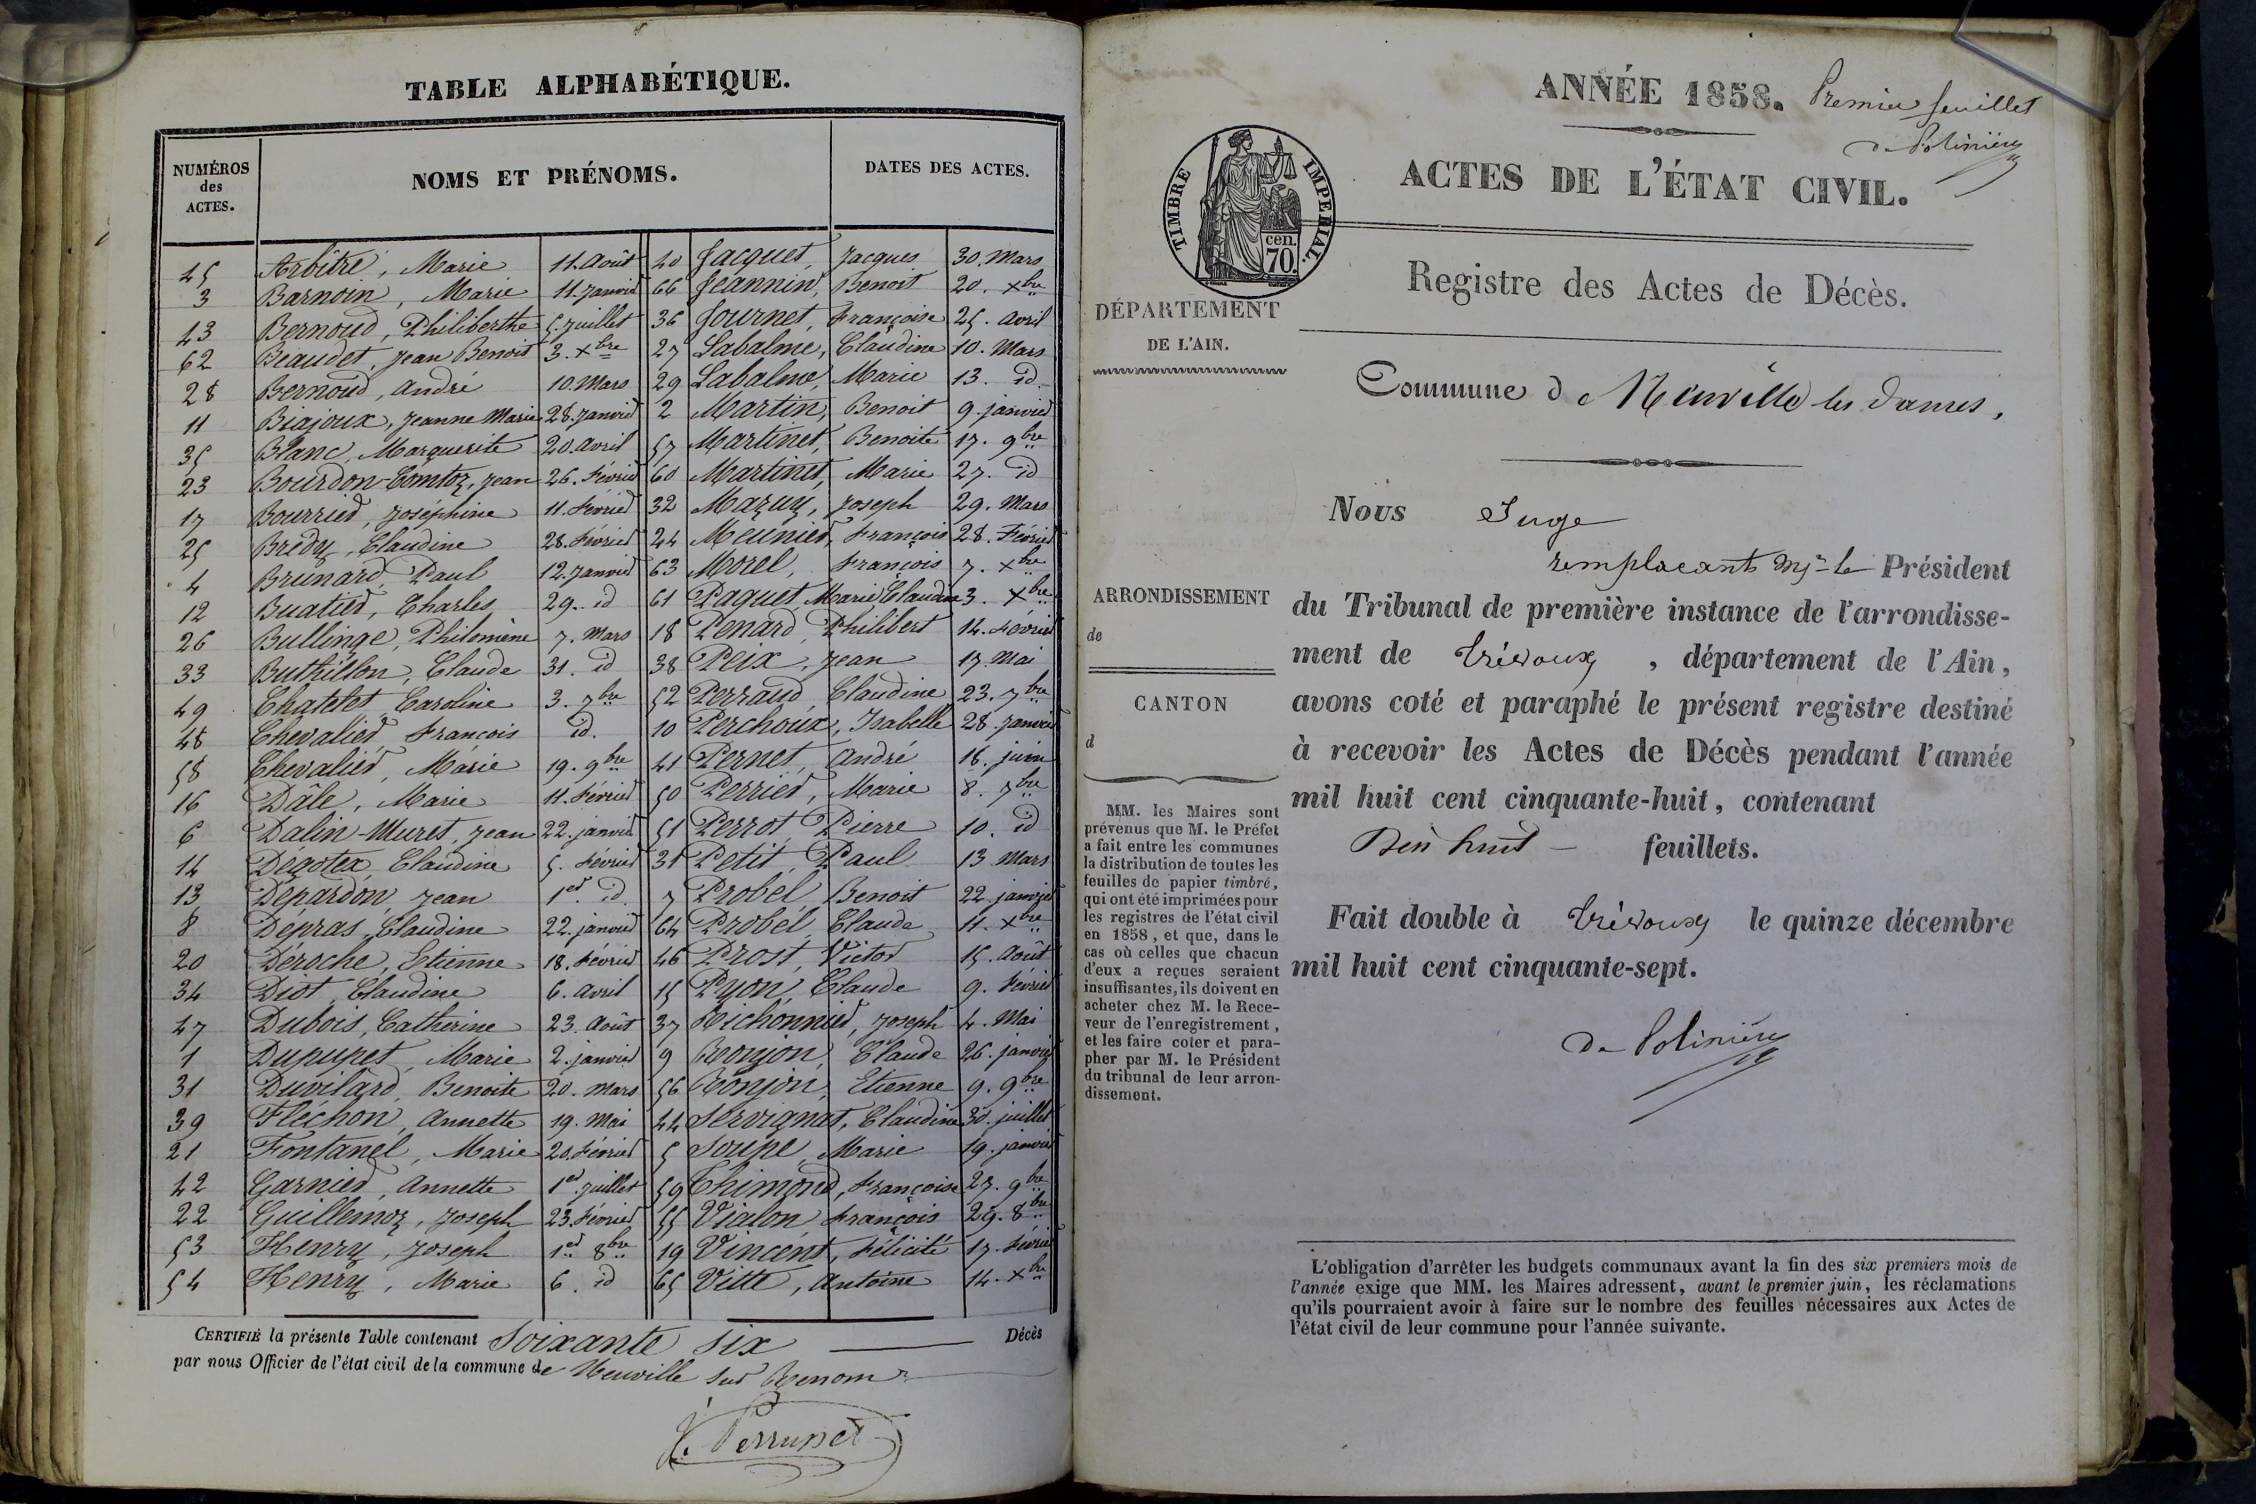 TABLE ALPHABÉTIQUE.
NUMÉROS
des
ACTES.
NOMS ET PRÉNOMS.
DATES DES ACTES.
45 Arbitre, Marie 11. Août
3 Barnoin, Marie 11. Janvier
43 Bernoud, Philiberthe 5. Juillet
62 Beaudet, Jean Benoit 3. Xbre
28 Bernoud, André 10. Mars
11 Biajoux, Jeanne Marie 28. Janvier
35 Blanc, Marguerite 20. Avril
23 Bourdon-Comtoz, Jean 26. Février
17 Bourrier, Joséphine 11. Février
25 Bredy, Claudine 28. Février
4 Brunard, Paul 12. Janvier
12 Buatier, Charles 29. id
26 Bullinge, Philomène 7. Mars
33 Buthillon, Claude 31. id
49 Chatelet, Caroline 3. 7bre
48 Chevalier, François id.
58 Chevalier, Marie 19. 9bre
16 Dâle, Marie 11. Février
6 Dalin-Muret, Jean 22. janvier
14 Dégotex, Claudine 5. Février
13 Depardon, Jean 1er. id.
8 Dépras, Claudine 22. janvier
20 Déroche, Etienne 18. Février
34 Diot, Claudine 6. Avril
47 Dubois, Catherine 23. Août
1 Dupupet, Marie 2. janvier
31 Duvilard, Benoite 20. Mars
39 Fléchon, Annette 19. Mai
21 Fontanel, Marie 20. Février
42 Garnier, Annette 1er. Juillet
22 Guillemoz, Joseph 23. Février
53 Henry, Joseph 1er 8bre
54 Henry, Marie 6. id
40 Jacquet, Jacques 30. Mars
66 Jeannin, Benoit 20. Xbre
36 Journet, Françoise 25. Avril
27 Labalme, Claudine 10. Mars
29 Labalme, Marie 13. id.
2 Martin, Benoit 9. janvier
57 Martinet, Benoite 17. 9bre
60 Martinet, Marie 27. id
32 Mazuy, Joseph 29. Mars
24 Meunier, François 28. Février
63 Morel, François 7. Xbre
61 Paquet, Marie Claudine 3. Xbre
18 Penard, Philibert 14. Février
38 Peix, Jean 17. Mai
52 Perraud, Claudine 23. 7bre
10 Perchoux, Isabelle 28. Janvier
41 Pernet, André 16. juin
50 Perrier, Marie 8. 7bre
51 Perrot, Pierre 10. id
31 Petit, Paul 13 Mars
7 Probel, Benoit 22 janvier
64 Probel, Claude 11. Xbre
46 Prost, Victor 15. Août
15 Pyon, Claude 9. Février
37 Richonnier, Joseph 4. Mai
9 Ronjon, Claude 26. janvier
56 Ronjon, Etienne 9. 9bre
44 Servignat, Claudine 30. juillet
5 Soupe, Marie 19. janvier
59 Thimond, Françoise 27. 9bre
55 Vialon, François 29. 8bre
19 Vincent, Félicité 17. Février
65 Vitte, Antoine 14. Xbre
CERTIFIÉ la présente Table contenant Soixante six Décès
par nous Officier de l'état civil de la commune de Neuville sur Renom
Perrupet
ANNÉE 1858. Premier feuillet
De Polinière
ACTES DE L'ÉTAT CIVIL.
TIMBRE IMPERIAL.
cen.
70.
Registre des Actes de Décès.
DÉPARTEMENT
DE L'AIN.
Commune de Neuville les Dames,
Nous Juge
remplaçant Mr le Président
du Tribunal de première instance de l'arrondisse-
ment de Trévoux, département de l'Ain,
avons coté et paraphé le présent registre destiné
à recevoir les Actes de Décès pendant l'année
mil huit cent cinquante-huit, contenant
Dix huit feuillets.
Fait double à Trévoux le quinze décembre
mil huit cent cinquante-sept.
De Polinière
ARRONDISSEMENT
de
CANTON
d
MM. les Maires sont
prévenus que M. le Préfet
a fait entre les communes
la distribution de toutes les
feuilles de papier timbré,
qui ont été imprimées pour
les registres de l'état civil
en 1858, et que, dans le
cas où celles que chacun
d'eux a reçues seraient
insuffisantes, ils doivent en
acheter chez M. le Rece-
veur de l'enregistrement,
et les faire coter et para-
pher par M. le Président
du tribunal de leur arron-
dissement.
L'obligation d'arrêter les budgets communaux avant la fin des six premiers mois de
l'année exige que MM. les Maires adressent, avant le premier juin, les réclamations
qu'ils pourraient avoir à faire sur le nombre des feuilles nécessaires aux Actes de
l'état civil de leur commune pour l'année suivante.